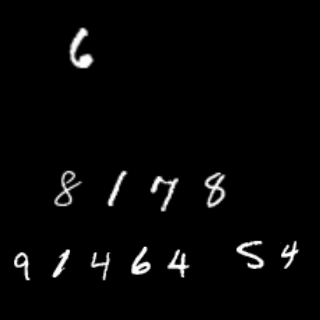 6
8178
91464 54